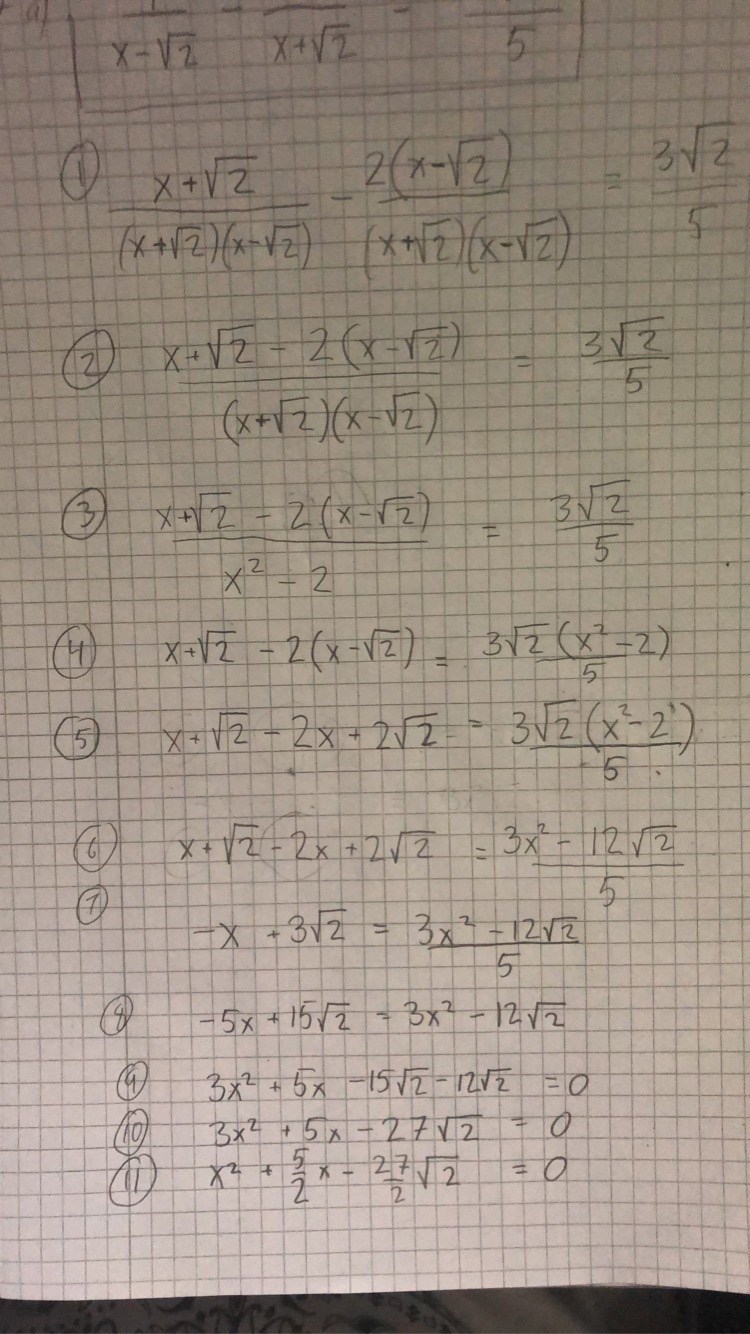 a)
x-√2 x+√2 5
① (x+√2)/((x+√2)(x-√2)) - 2(x-√2)/((x+√2)(x-√2)) = 3√2/5
② (x+√2 - 2(x-√2))/((x+√2)(x-√2)) = 3√2/5
③ (x+√2 - 2(x-√2))/(x² - 2) = 3√2/5
④ x+√2 - 2(x-√2) = 3√2(x²-2)/5
⑤ x+√2 - 2x + 2√2 = 3√2(x²-2)/5
⑥ x+√2 - 2x + 2√2 = (3x² - 12√2)/5
⑦ -x + 3√2 = (3x² - 12√2)/5
⑧ -5x + 15√2 = 3x² - 12√2
⑨ 3x² + 5x - 15√2 - 12√2 = 0
⑩ 3x² + 5x - 27√2 = 0
⑪ x² + 5/2 x - 27/2 √2 = 0